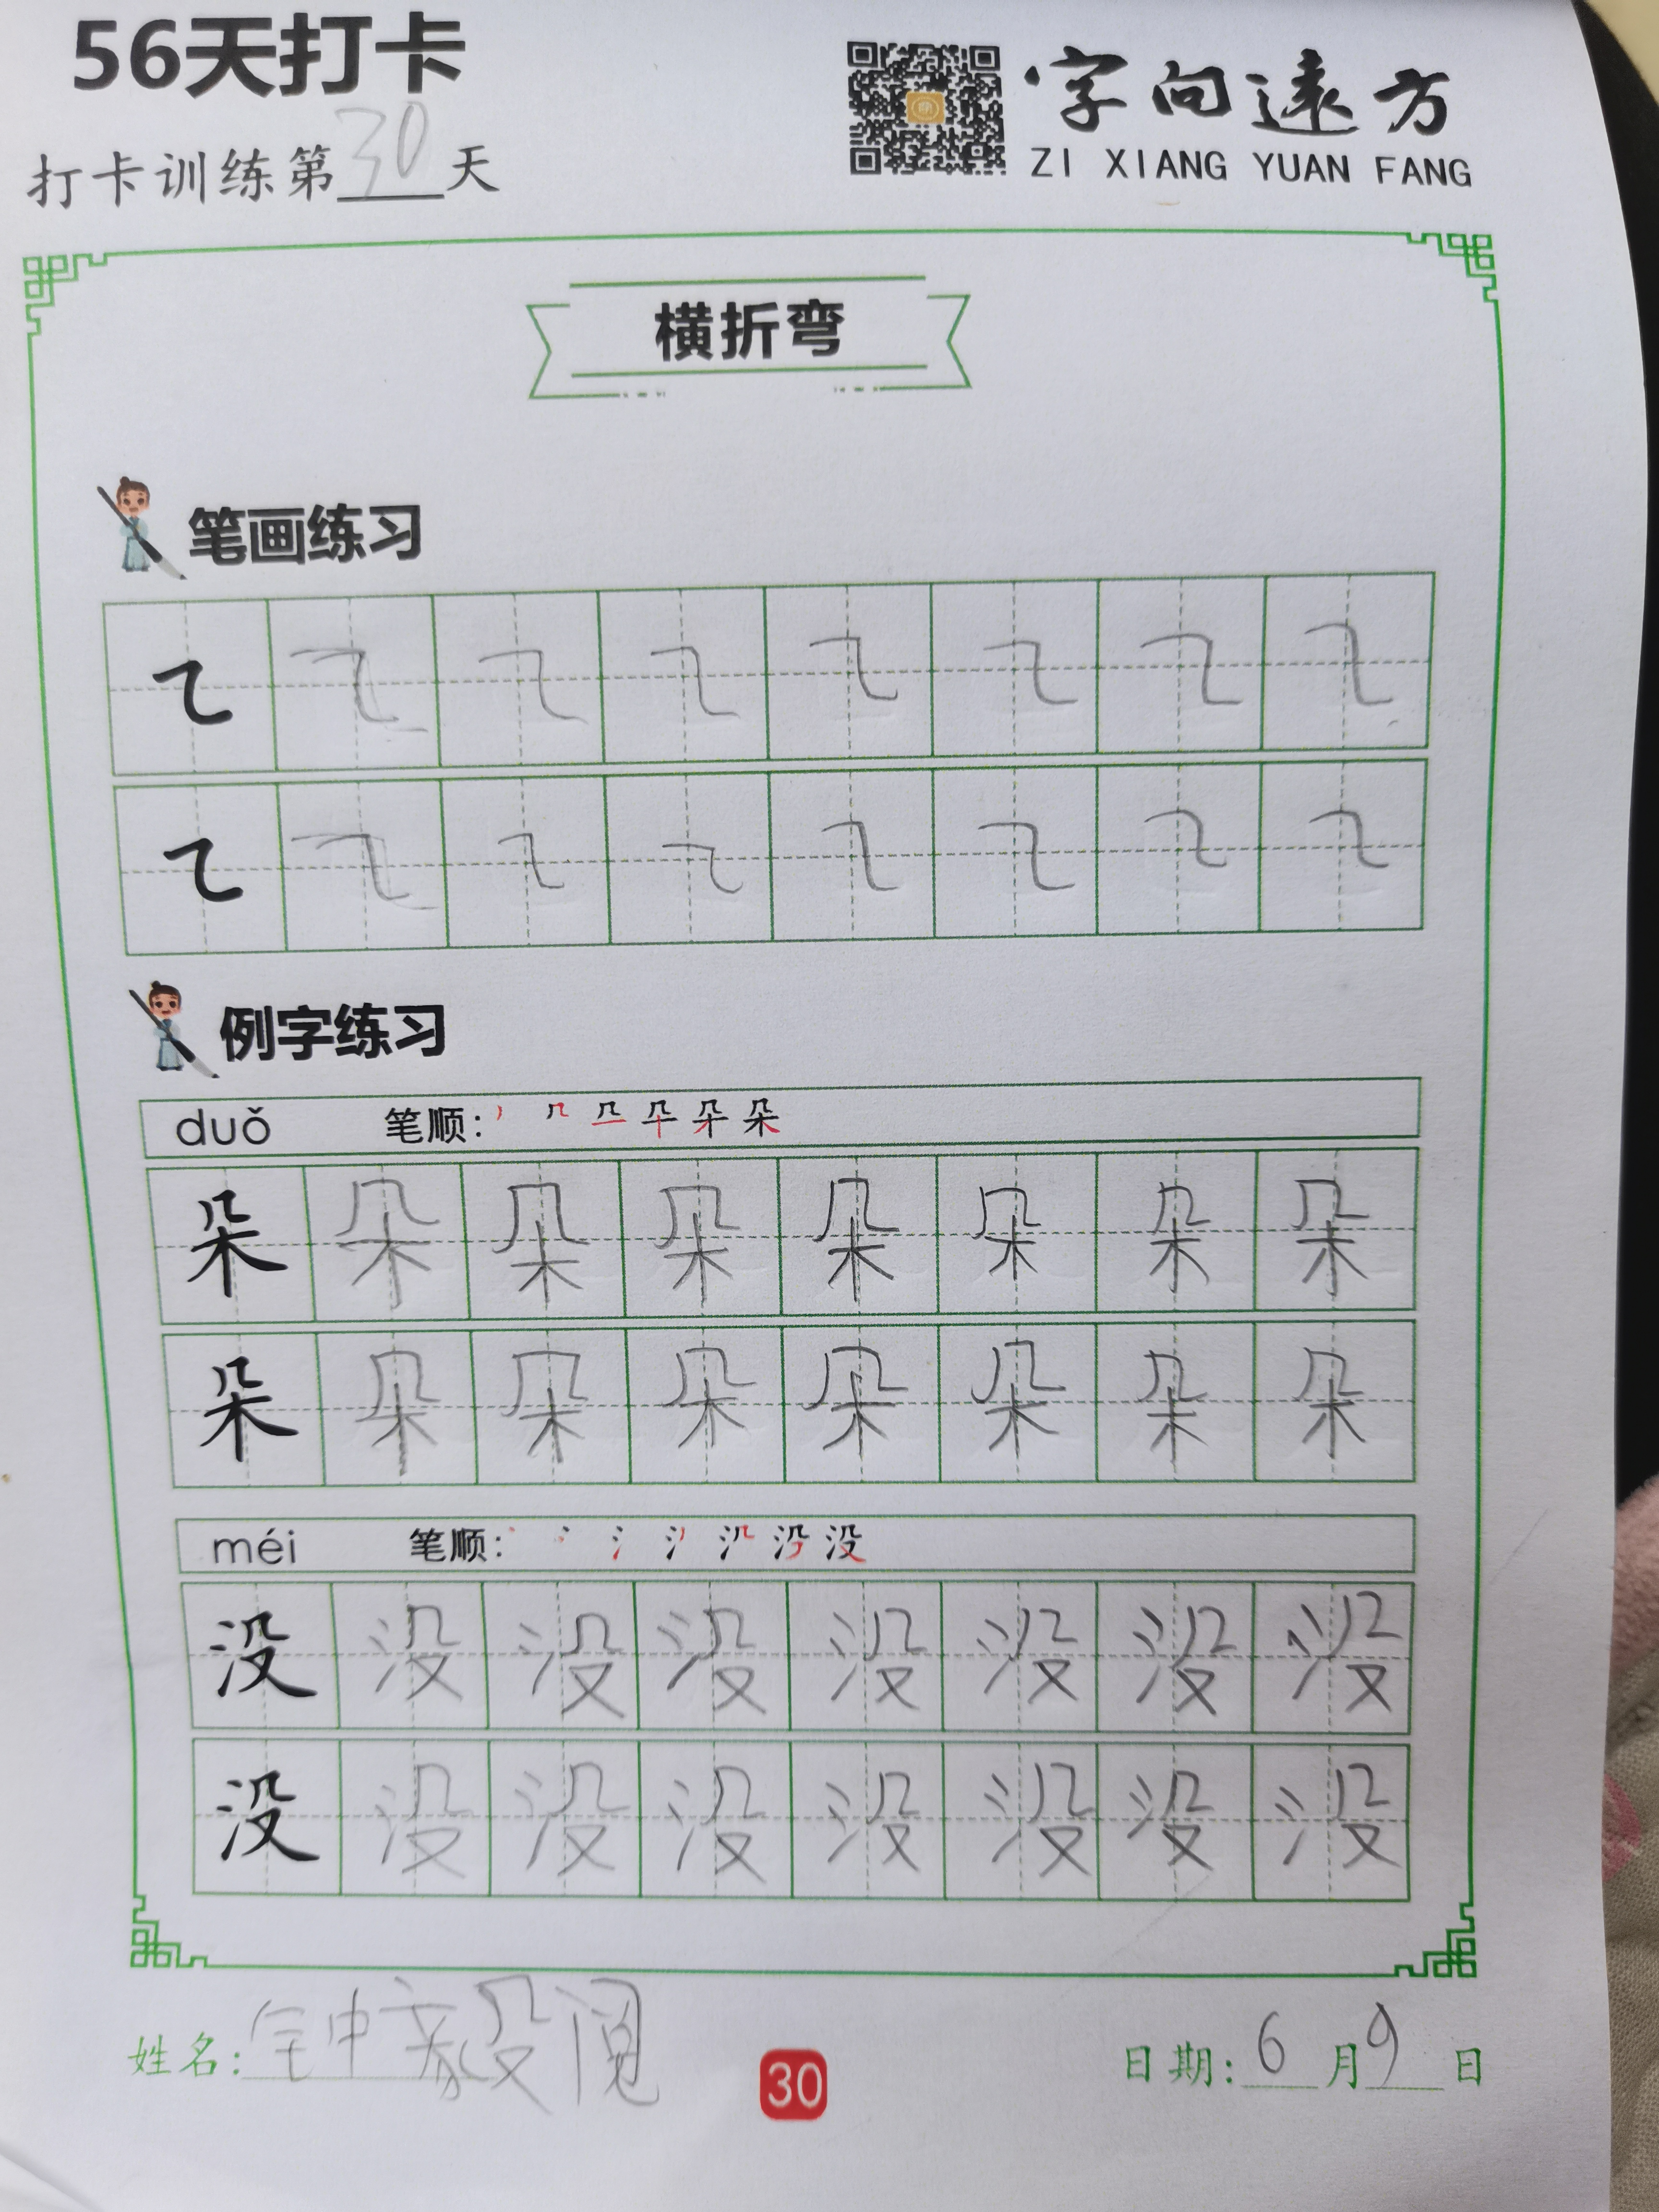 56天打卡
字向遠方
ZI XIANG YUAN FANG
打卡训练第30天
横折弯
笔画练习
㇍ ㇍ ㇍ ㇍ ㇍ ㇍ ㇍ ㇍
㇍ ㇍ ㇍ ㇍ ㇍ ㇍ ㇍ ㇍
例字练习
duǒ 笔顺: 朵
朵 朵 朵 朵 朵 朵 朵 朵
朵 朵 朵 朵 朵 朵 朵 朵
méi 笔顺: 没
没 没 没 没 没 没 没 没
没 没 没 没 没 没 没 没
姓名: 钟毅阅
30
日期: 6月9日